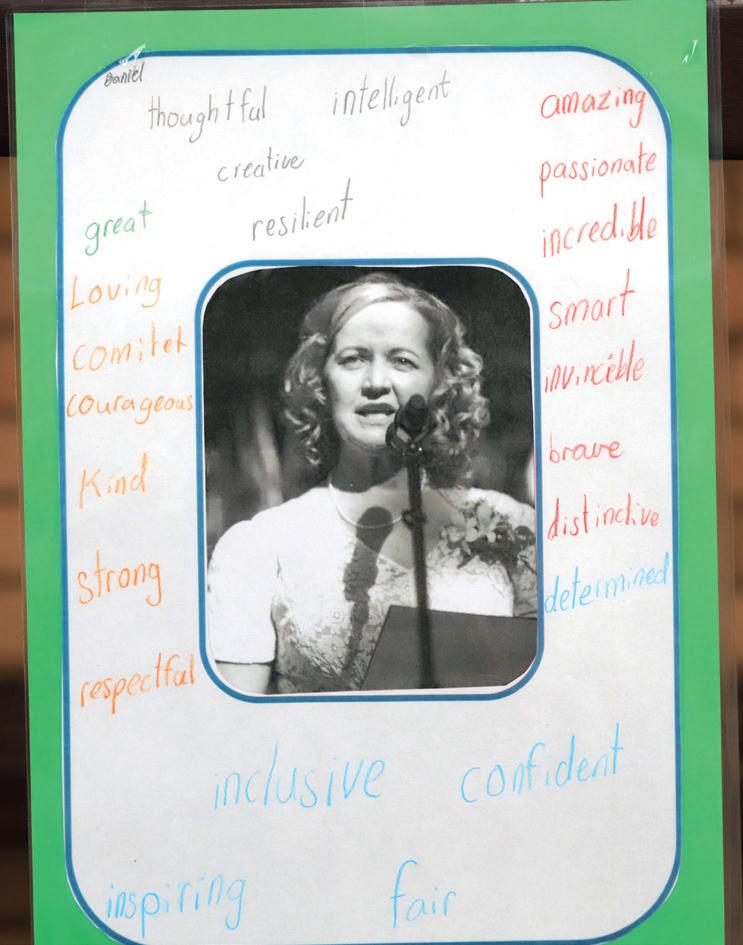 Daniel
thoughtful intelligent
creative
resilient
great
Loving
comitet
courageous
Kind
strong
respectful
amazing
passionate
incredible
smart
invinceble
brave
distinctive
determined
inclusive confident
inspiring fair